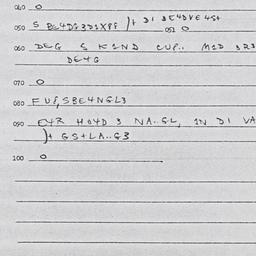 040 O
050 S BE4DG3D1XPP )+ D1 BE4DVE4S+
051 O
060 DEG S K1ND CUP.. M1D 3R3
DE4G
070 O
080 FUP,SBE4NGL3
090 E4R H04D 3 NA..GL, 1N D1 VA
)+ GS+LA..G3
100 O